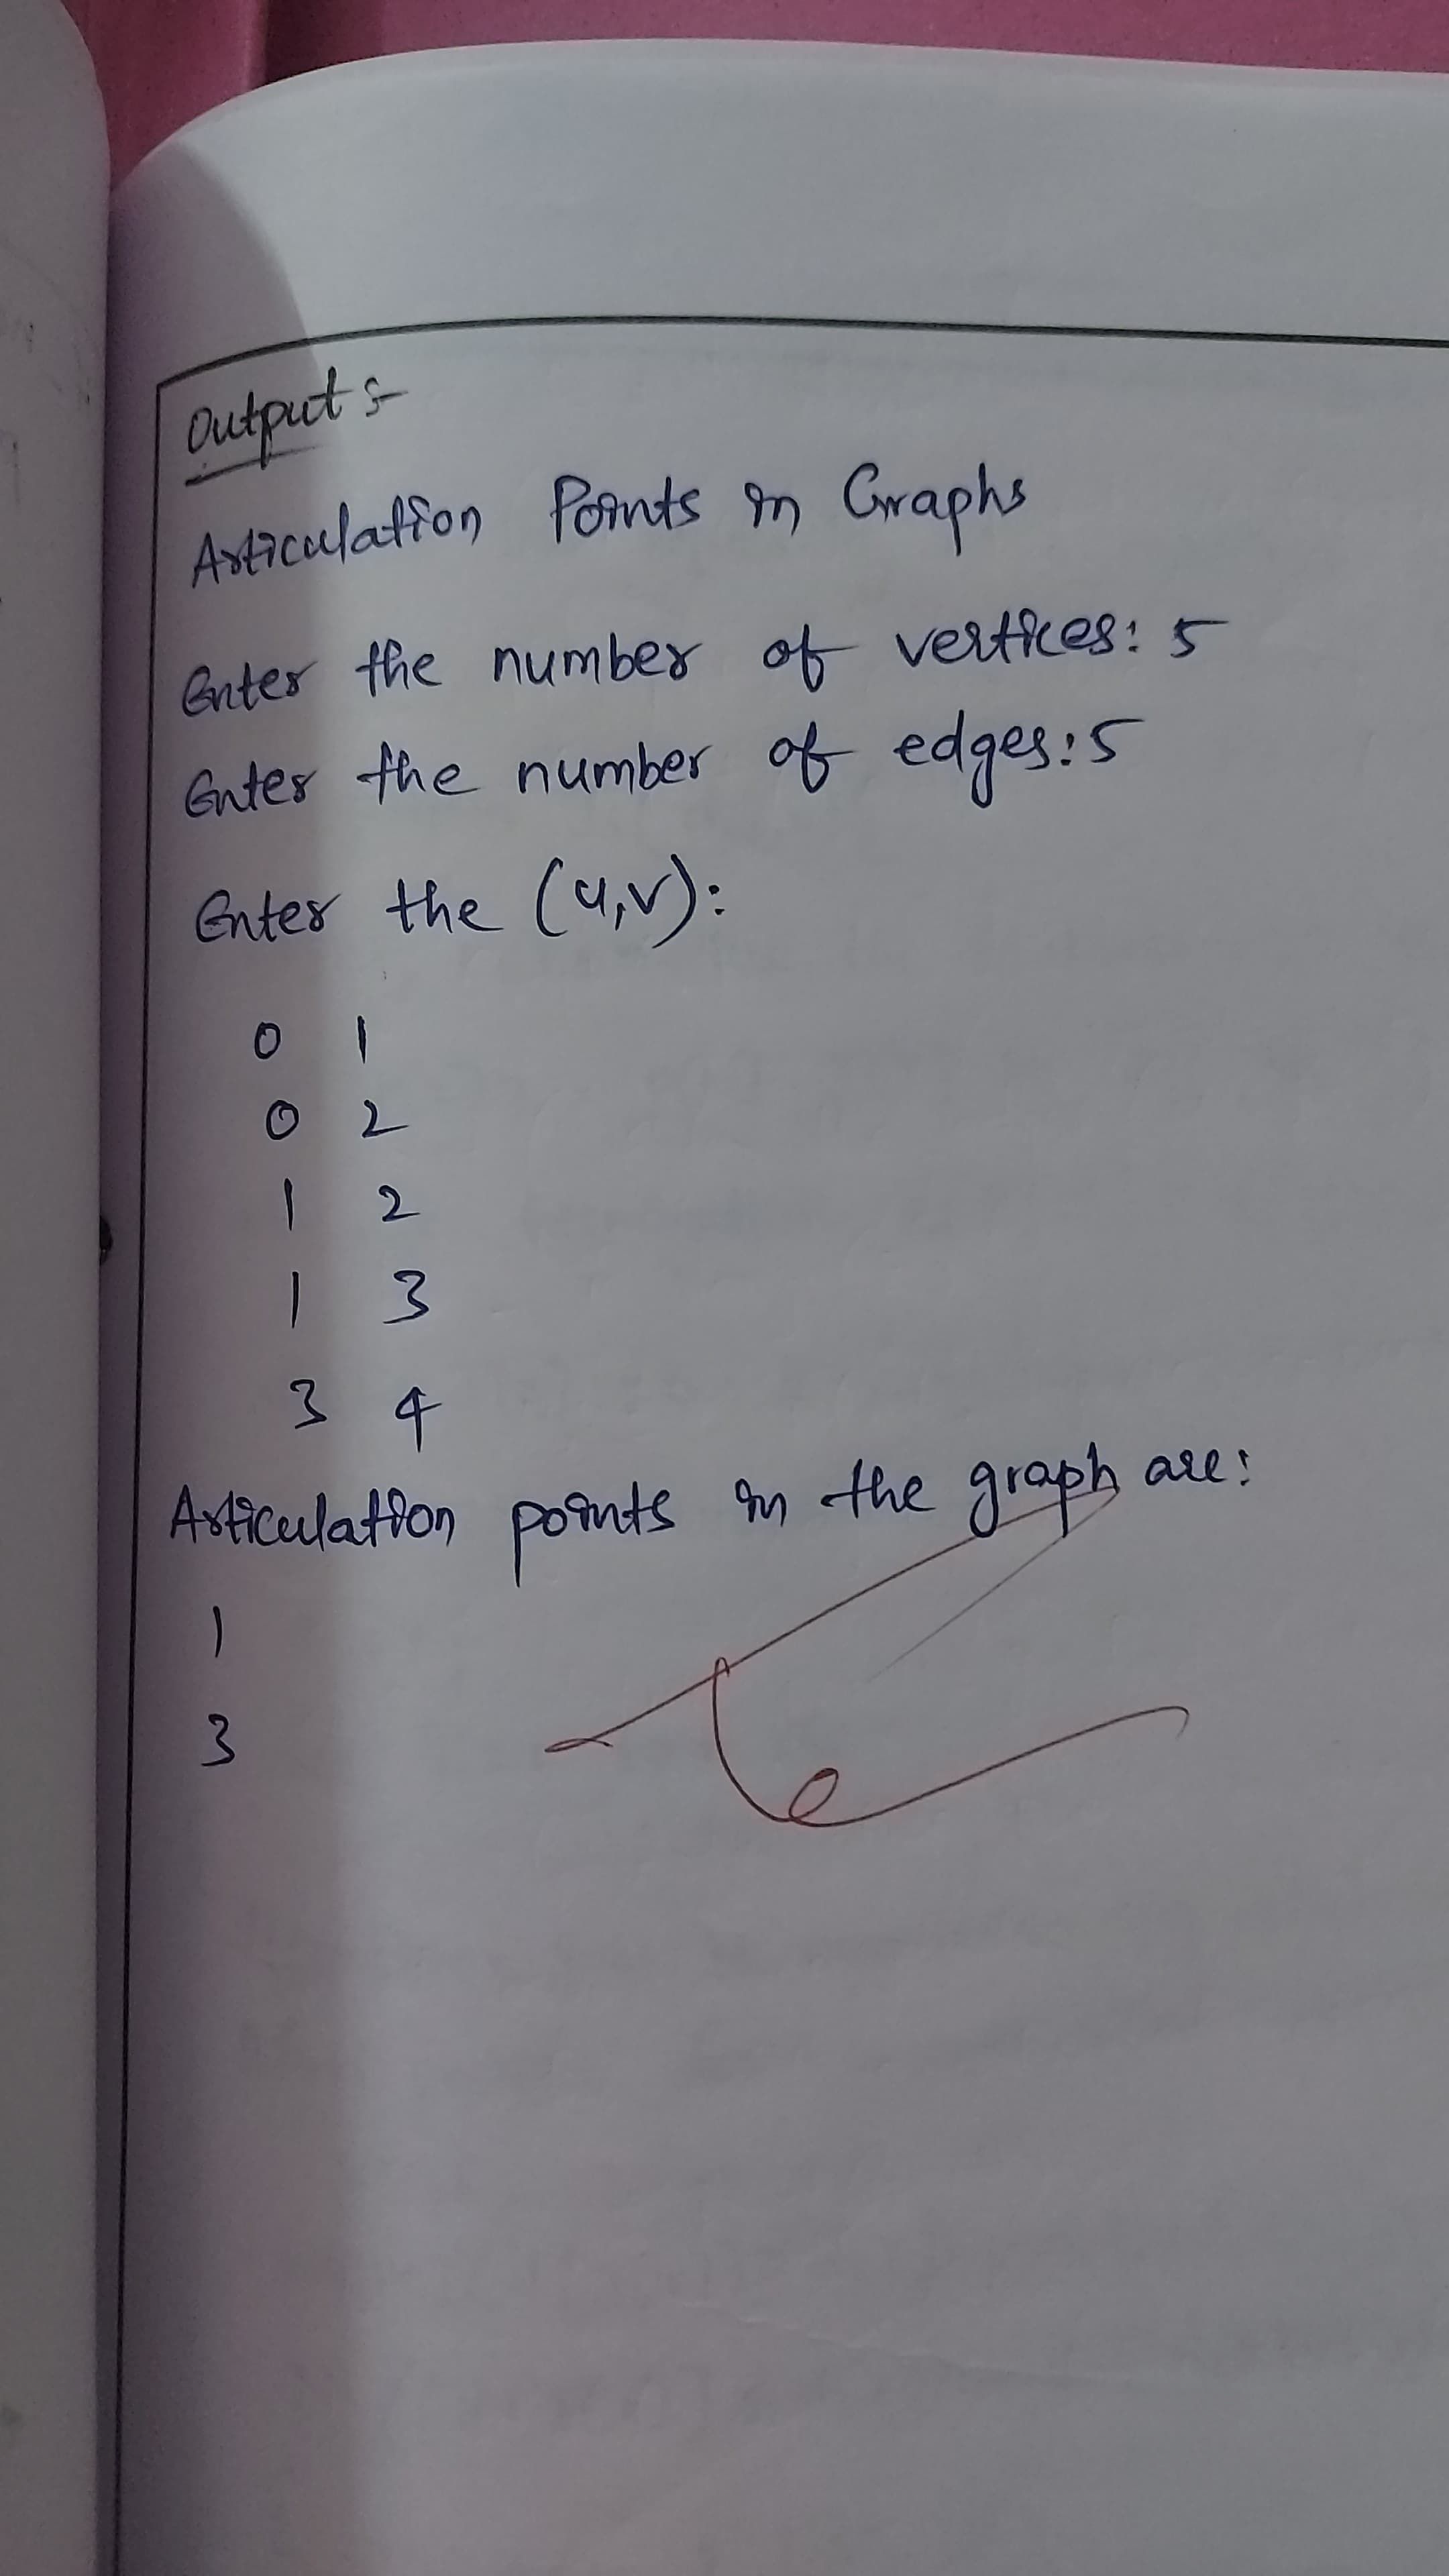 Output :-
Articulation Points in Graphs
Enter the number of vertices: 5
Enter the number of edges: 5
Enter the (u,v):
0 1
0 2
1 2
1 3
3 4
Articulation points in the graph are:
1
3